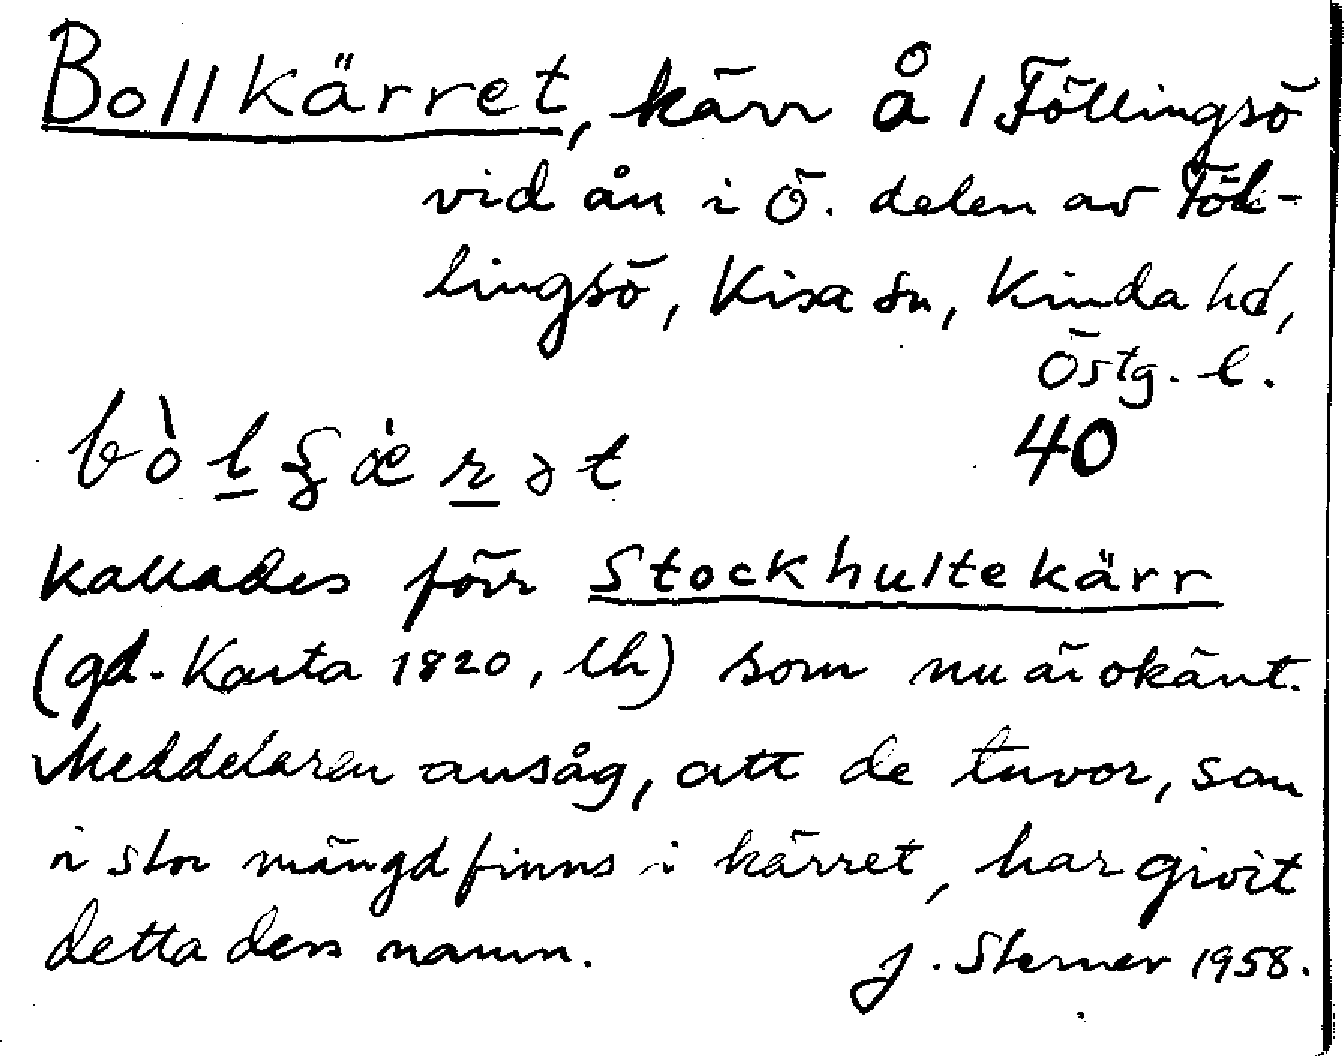 Bollkärret, kärr å 1 Föllingsö
vid ån i ö. delen av Föl-
lingsö, Kisa sn, Kinda hd,
Östg. l.
40
kallades förr Stockhultekärr
(gd. Karta 1820, Lh) som nu är okänt.
Meddelaren ansåg, att de tuvor, som
i stor mängd finns i kärret, har givit
detta dess namn.
J. Sterner 1958.